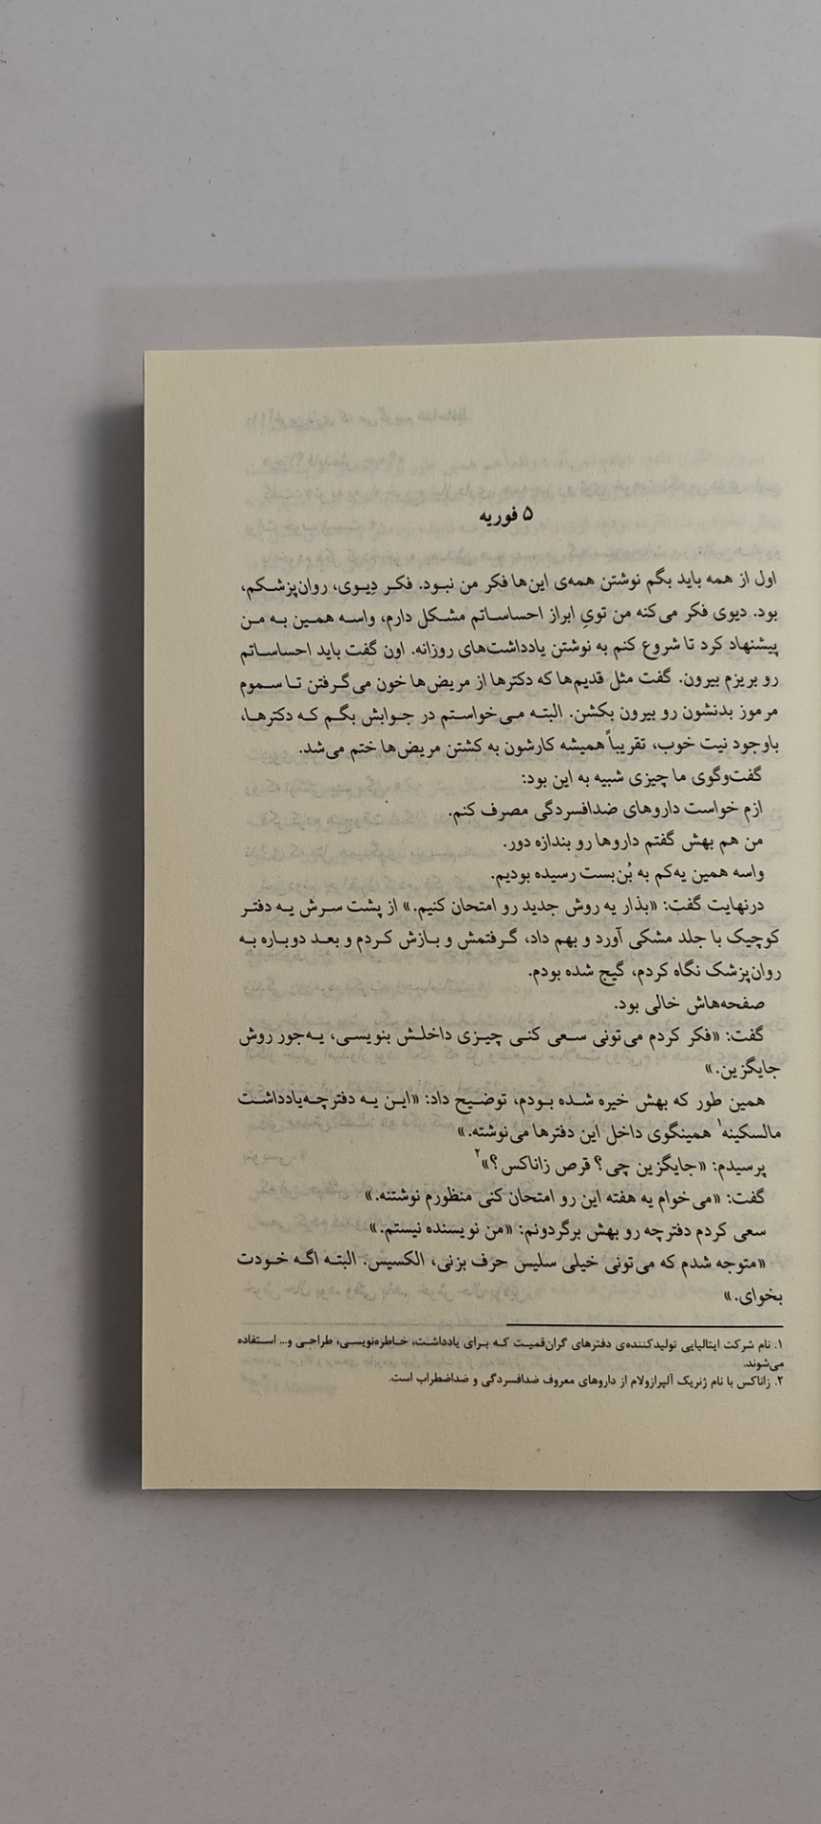 ۵ فوریه
اول از همه باید بگم نوشتن همه‌ی این‌ها فکر من نبود. فکر دِیوی، روان‌پزشکم،
بود. دیوی فکر می‌کنه من تویِ ابراز احساساتم مشکل دارم، واسه همین به من
پیشنهاد کرد تا شروع کنم به نوشتن یادداشت‌های روزانه. اون گفت باید احساساتم
رو بریزم بیرون. گفت مثل قدیم‌ها که دکترها از مریض‌ها خون می‌گرفتن تا سموم
مرموز بدنشون رو بیرون بکشن. البته می‌خواستم در جوابش بگم که دکترها،
باوجود نیت خوب، تقریباً همیشه کارشون به کشتن مریض‌ها ختم می‌شد.
گفت‌وگوی ما چیزی شبیه به این بود:
ازم خواست داروهای ضدافسردگی مصرف کنم.
من هم بهش گفتم داروها رو بندازه دور.
واسه همین یه‌کم به بُن‌بست رسیده بودیم.
درنهایت گفت: «بذار یه روش جدید رو امتحان کنیم.» از پشت سرش یه دفتر
کوچیک با جلد مشکی آورد و بهم داد، گرفتمش و بازش کردم و بعد دوباره به
روان‌پزشک نگاه کردم، گیج شده بودم.
صفحه‌هاش خالی بود.
گفت: «فکر کردم می‌تونی سعی کنی چیزی داخلش بنویسی، یه‌جور روش
جایگزین.»
همین طور که بهش خیره شده بودم، توضیح داد: «این یه دفترچه‌یادداشت
مالسکینه۱ همینگوی داخل این دفترها می‌نوشته.»
پرسیدم: «جایگزین چی؟ قرص زاناکس؟»۲
گفت: «می‌خوام یه هفته این رو امتحان کنی منظورم نوشتنه.»
سعی کردم دفترچه رو بهش برگردونم: «من نویسنده نیستم.»
«متوجه شدم که می‌تونی خیلی سلیس حرف بزنی، الکسیس. البته اگه خودت
بخوای.»
۱. نام شرکت ایتالیایی تولیدکننده‌ی دفترهای گران‌قمیت که برای یادداشت، خاطره‌نویسی، طراحی و... استفاده
می‌شوند.
۲. زاناکس با نام ژنریک آلپرازولام از داروهای معروف ضدافسردگی و ضداضطراب است.